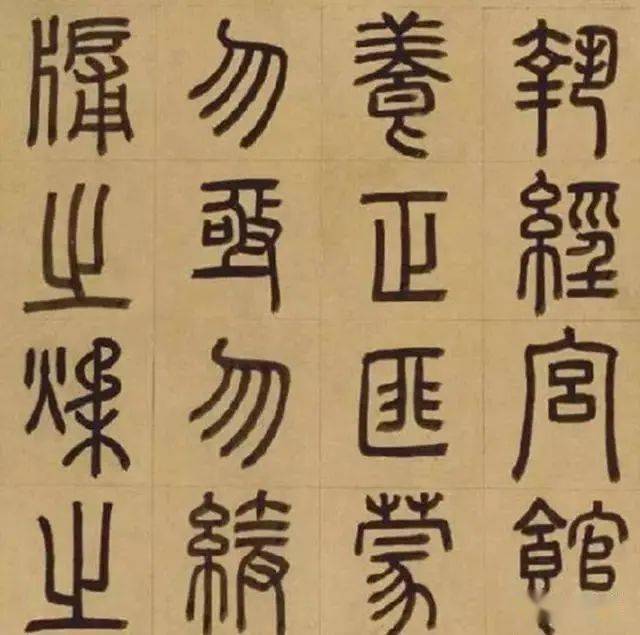 執經宮館
養正匪蒙
勿亟勿緩
牖之煣之